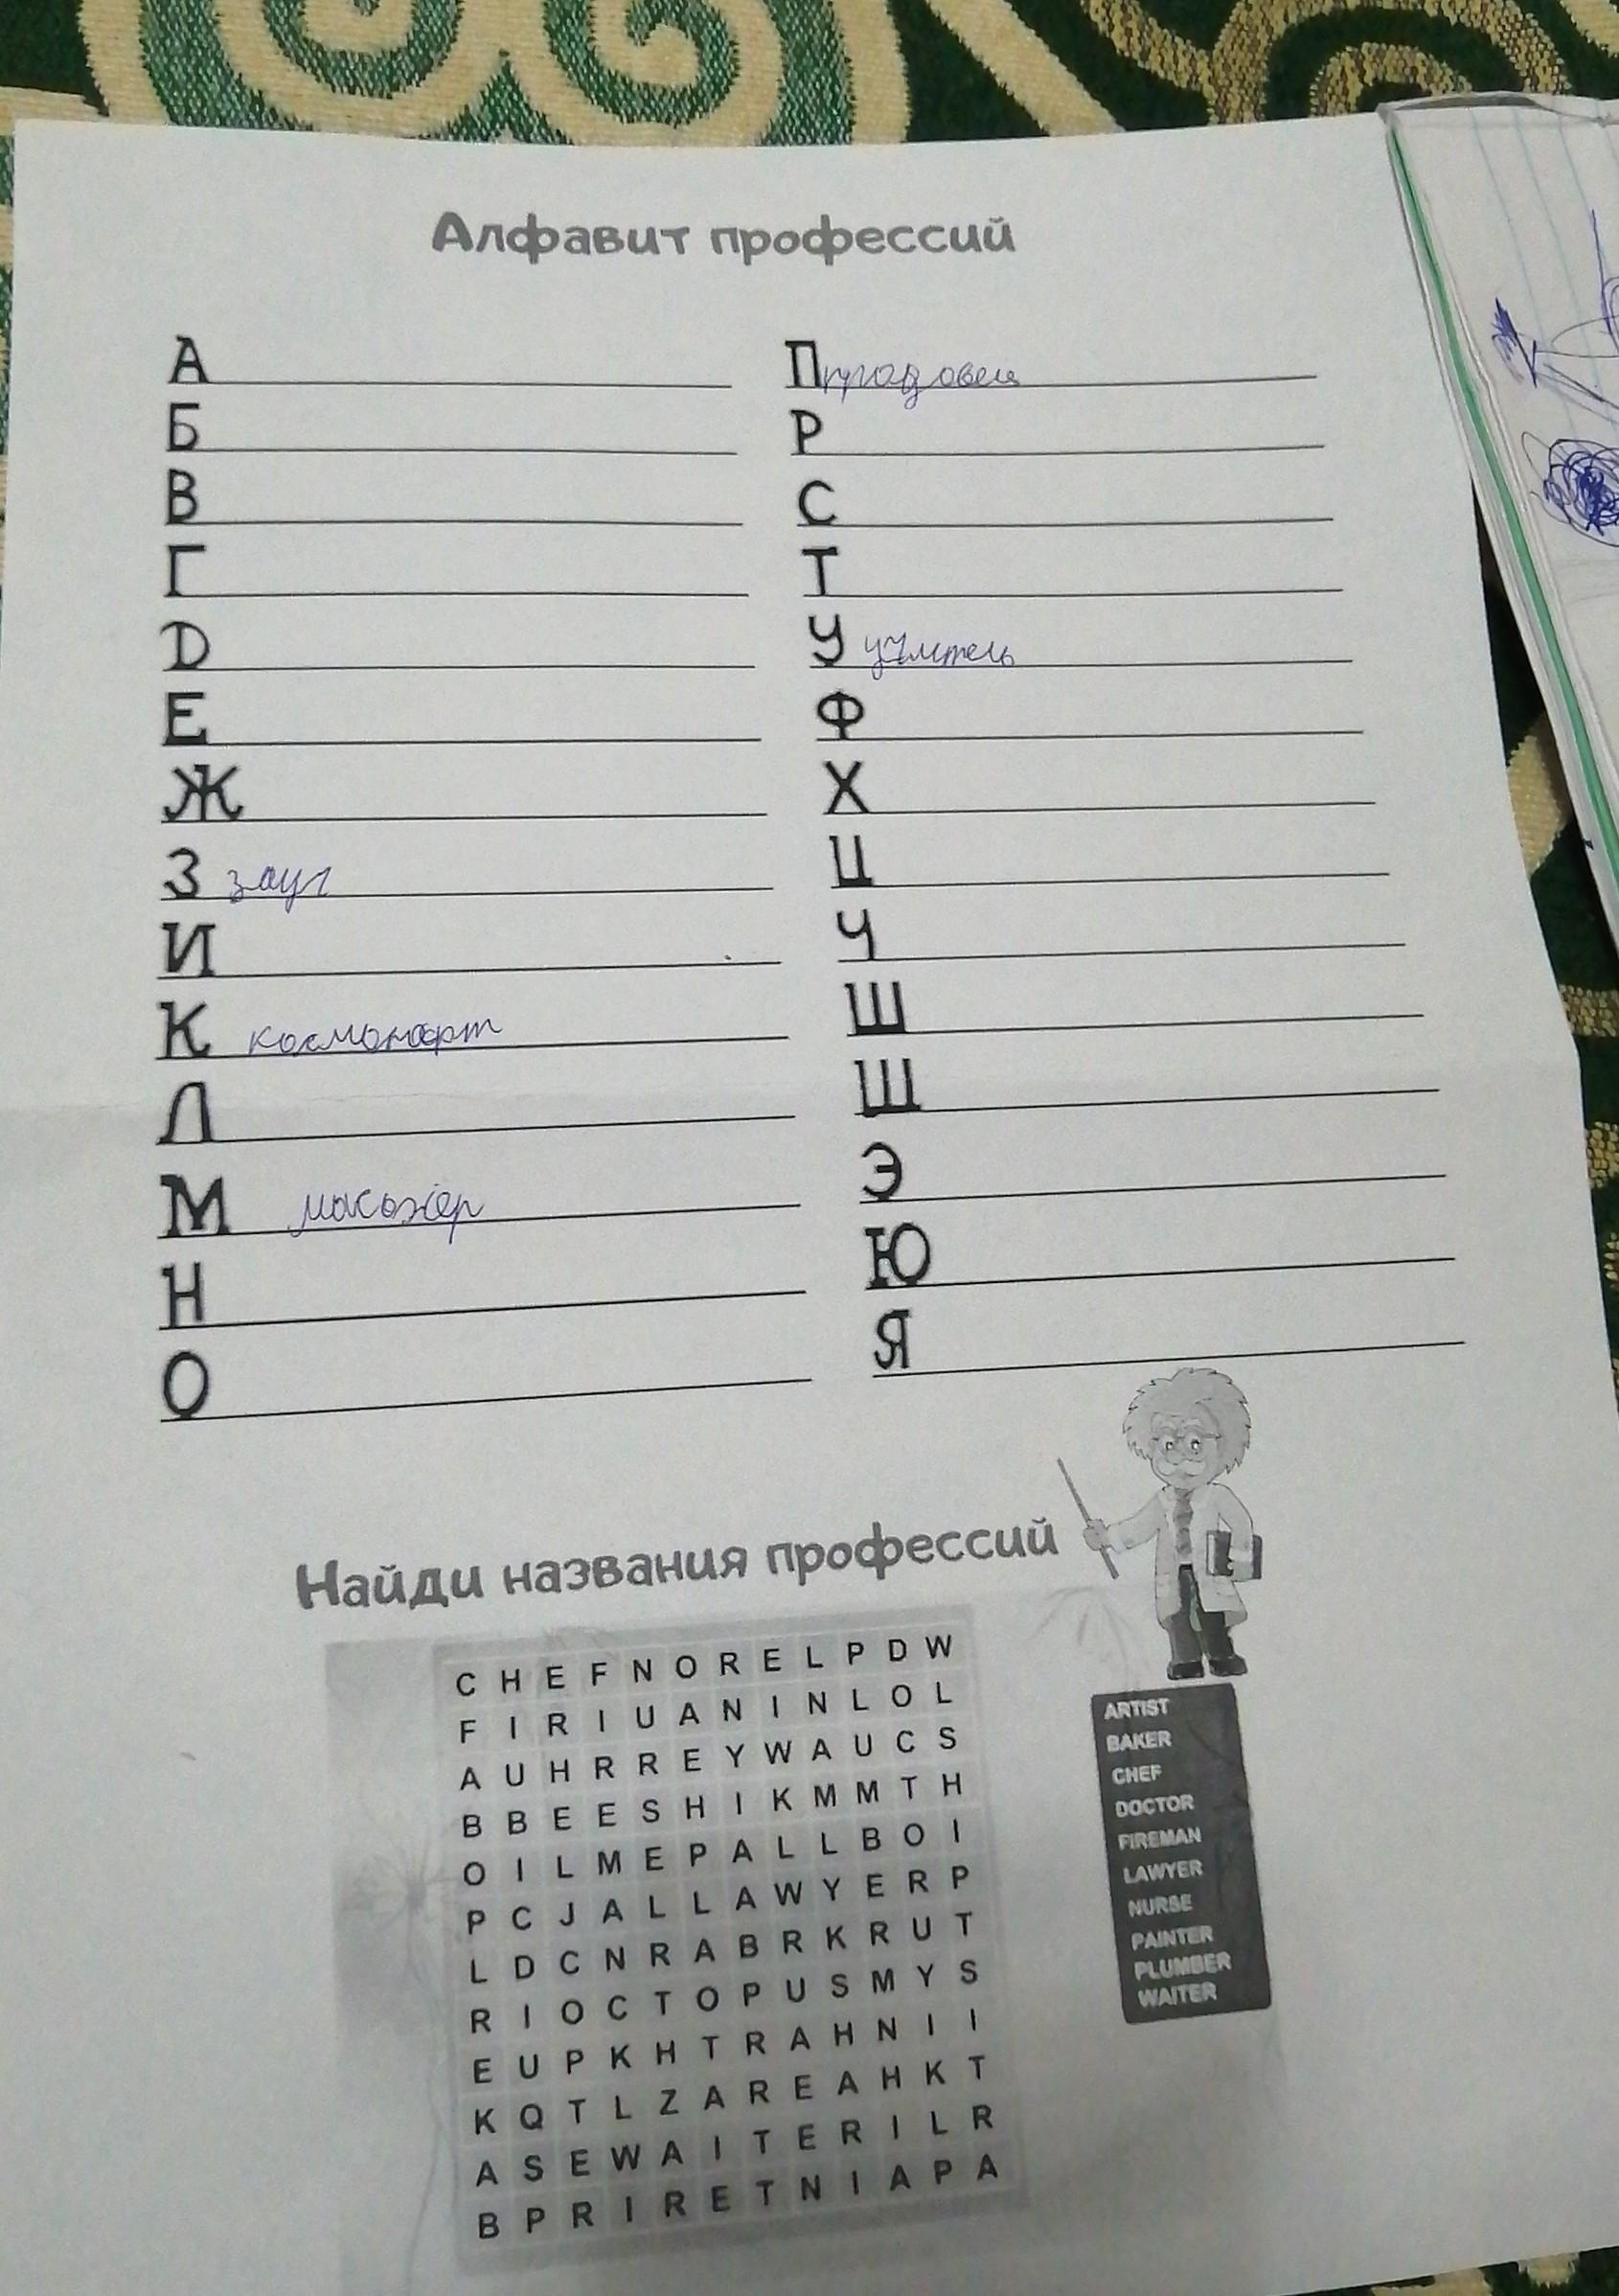 Алфавит профессий
А
Б
В
Г
D
Е
Ж
З зауч
И
К космонорт
Л
М масожёр
Н
О
П продовец
Р
С
Т
У учитель
Ф
Х
Ц
Ч
Ш
Щ
Э
Ю
Я
Найди названия профессий
C H E F N O R E L P D W
F I R I U A N I N L O L
A U H R R E Y W A U C S
B B E E S H I K M M T H
O I L M E P A L L B O I
P C J A L L A W Y E R P
L D C N R A B R K R U T
R I O C T O P U S M Y S
E U P K H T R A H N I I
K Q T L Z A R E A H K T
A S E W A I T E R I L R
B P R I R E T N I A P A
ARTIST
BAKER
CHEF
DOCTOR
FIREMAN
LAWYER
NURSE
PAINTER
PLUMBER
WAITER